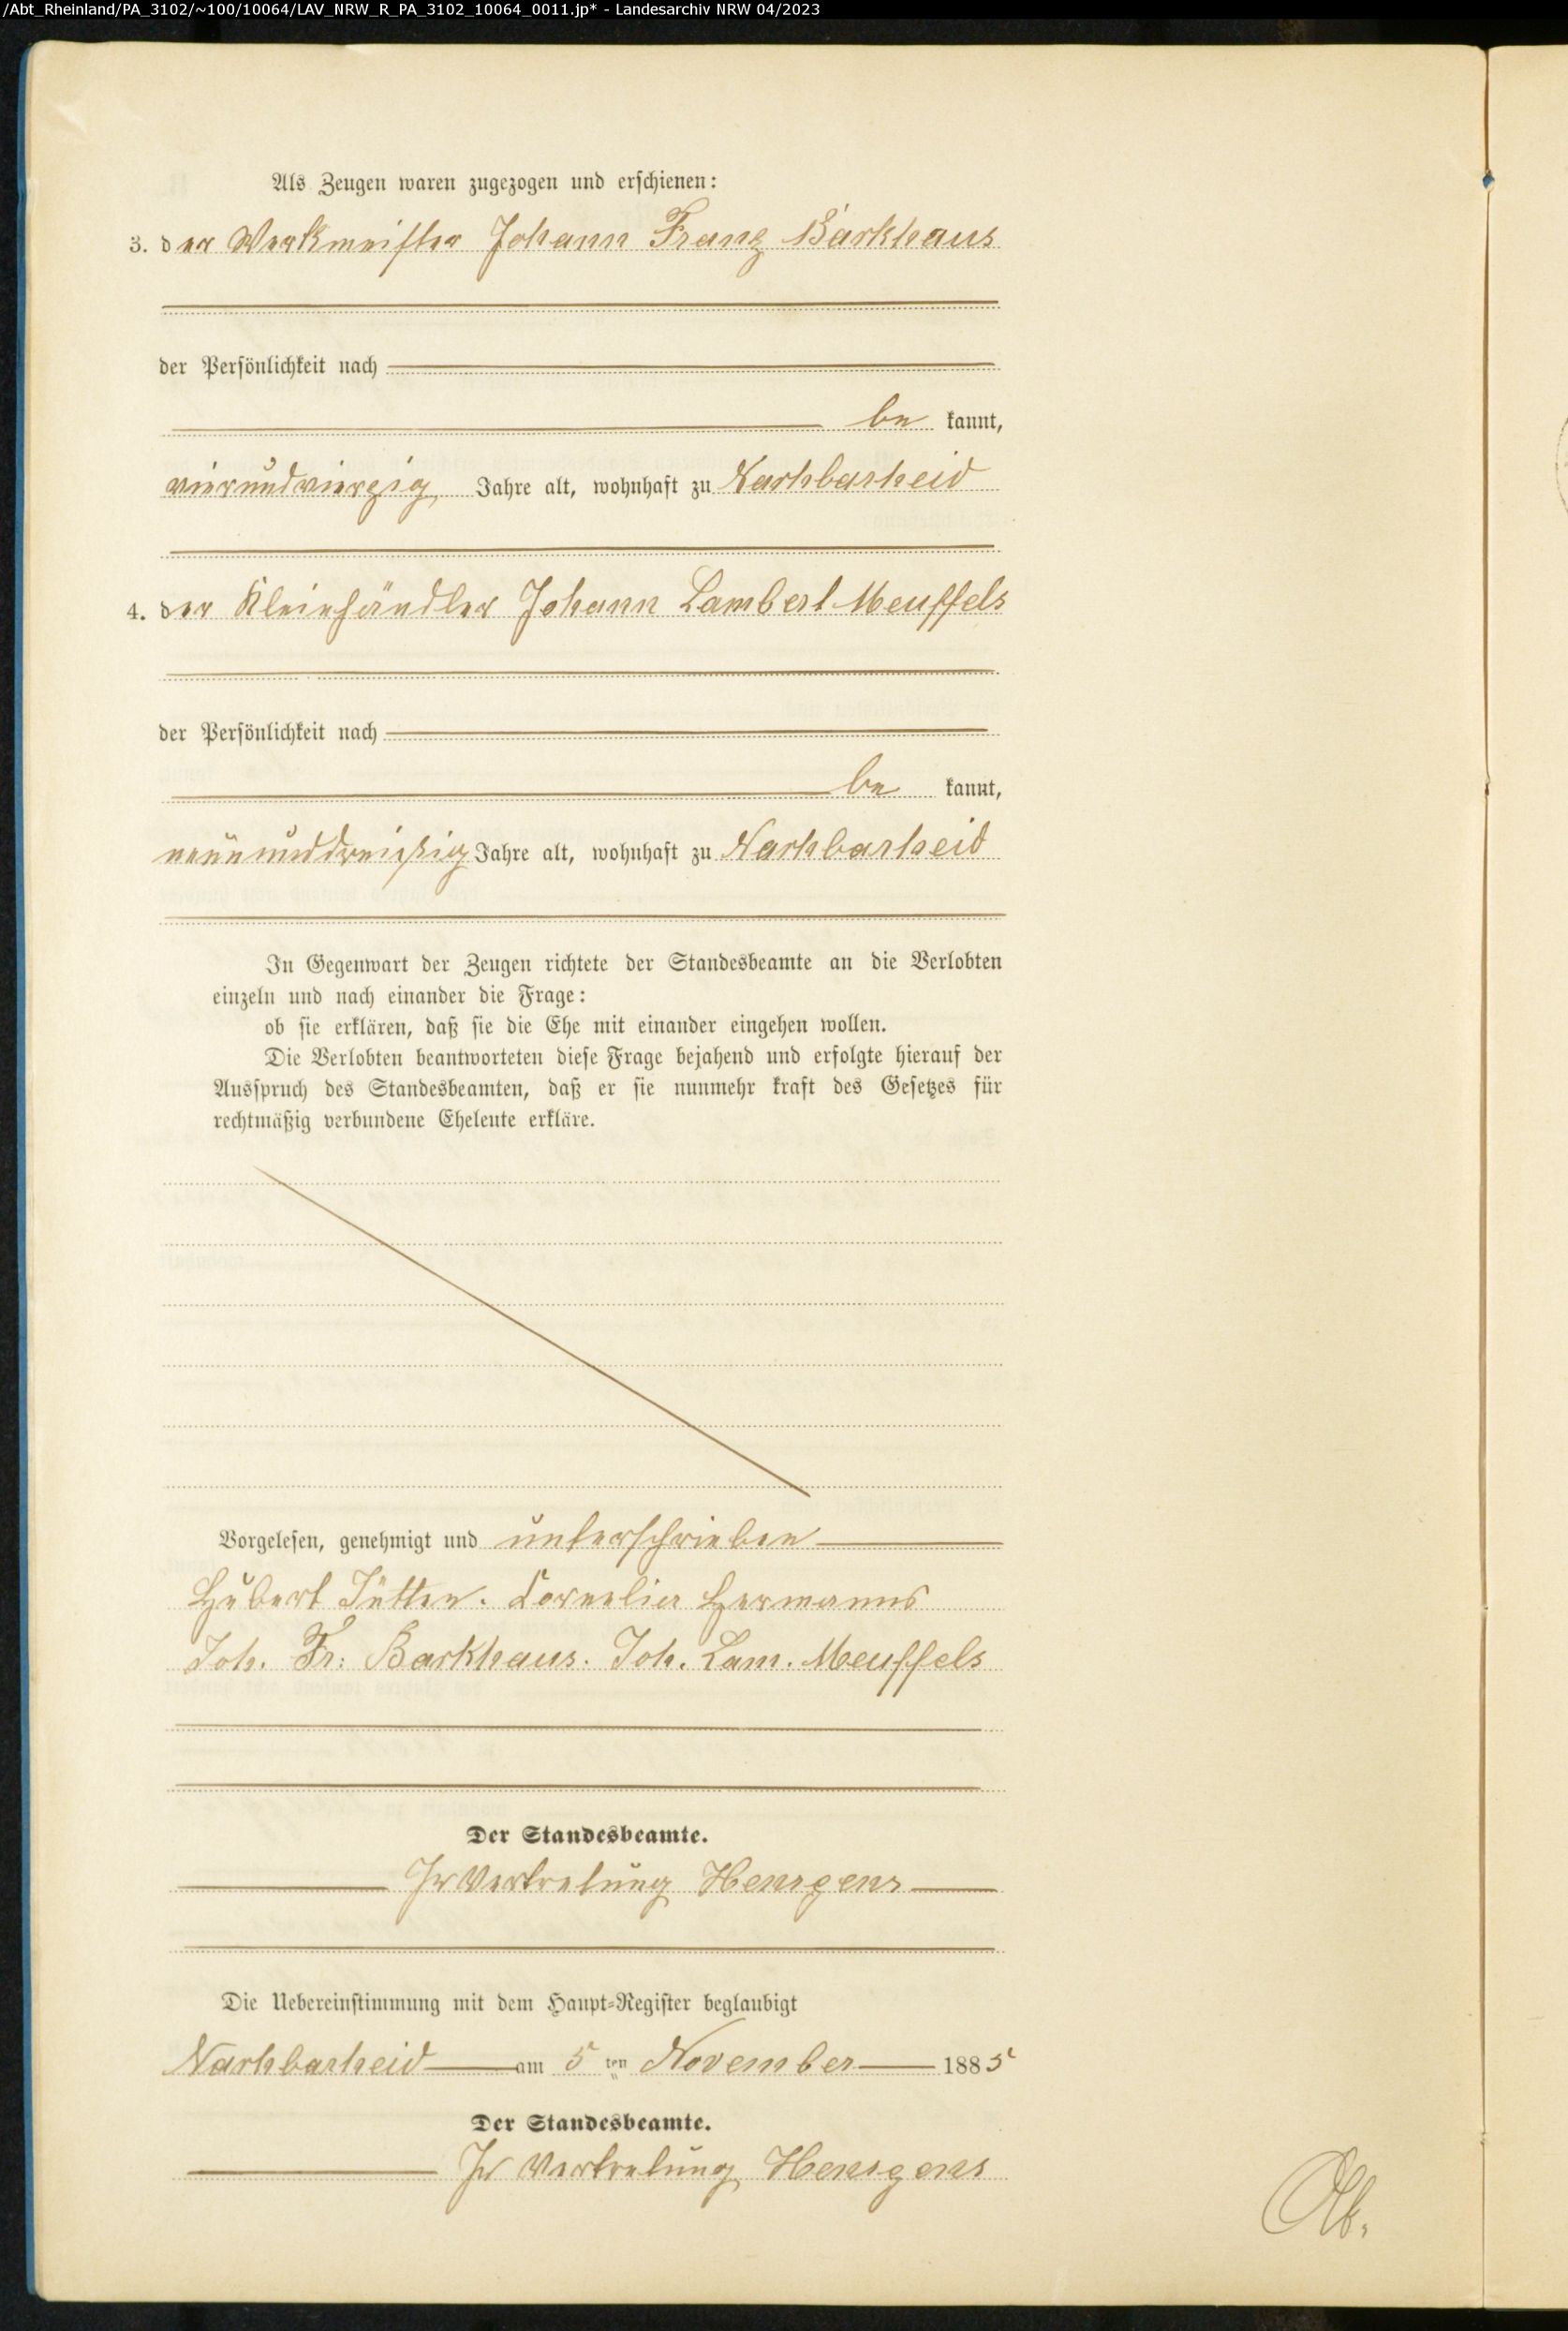 /Abt_Rheinland/PA_3102/~100/10064/LAV_NRW_R_PA_3102_10064_0011.jp* - Landesarchiv NRW 04/2023
Als Zeugen waren zugezogen und erschienen:
3. der Werkmeister Johann Franz Barkhaus
der Persönlichkeit nach
be kannt,
vierundvierzig Jahre alt, wohnhaft zu Narhbarheid
4. der Kleinhändler Johann Lambert Meuffels
der Persönlichkeit nach
be kannt,
neununddreißig Jahre alt, wohnhaft zu Narhbarheid
In Gegenwart der Zeugen richtete der Standesbeamte an die Verlobten
einzeln und nach einander die Frage:
ob sie erklären, daß sie die Ehe mit einander eingehen wollen.
Die Verlobten beantworteten diese Frage bejahend und erfolgte hierauf der
Ausspruch des Standesbeamten, daß er sie nunmehr kraft des Gesetzes für
rechtmäßig verbundene Eheleute erkläre.
Vorgelesen, genehmigt und unterschrieben
Hubert Jütten. Cornelia Hermanns
Joh. Fr: Barkhaus. Joh. Lam. Meuffels
Der Standesbeamte.
In Vertretung Hensgens
Die Uebereinstimmung mit dem Haupt-Register beglaubigt
Narhbarheid am 5 ten November 1885
Der Standesbeamte.
In Vertretung Hensgens